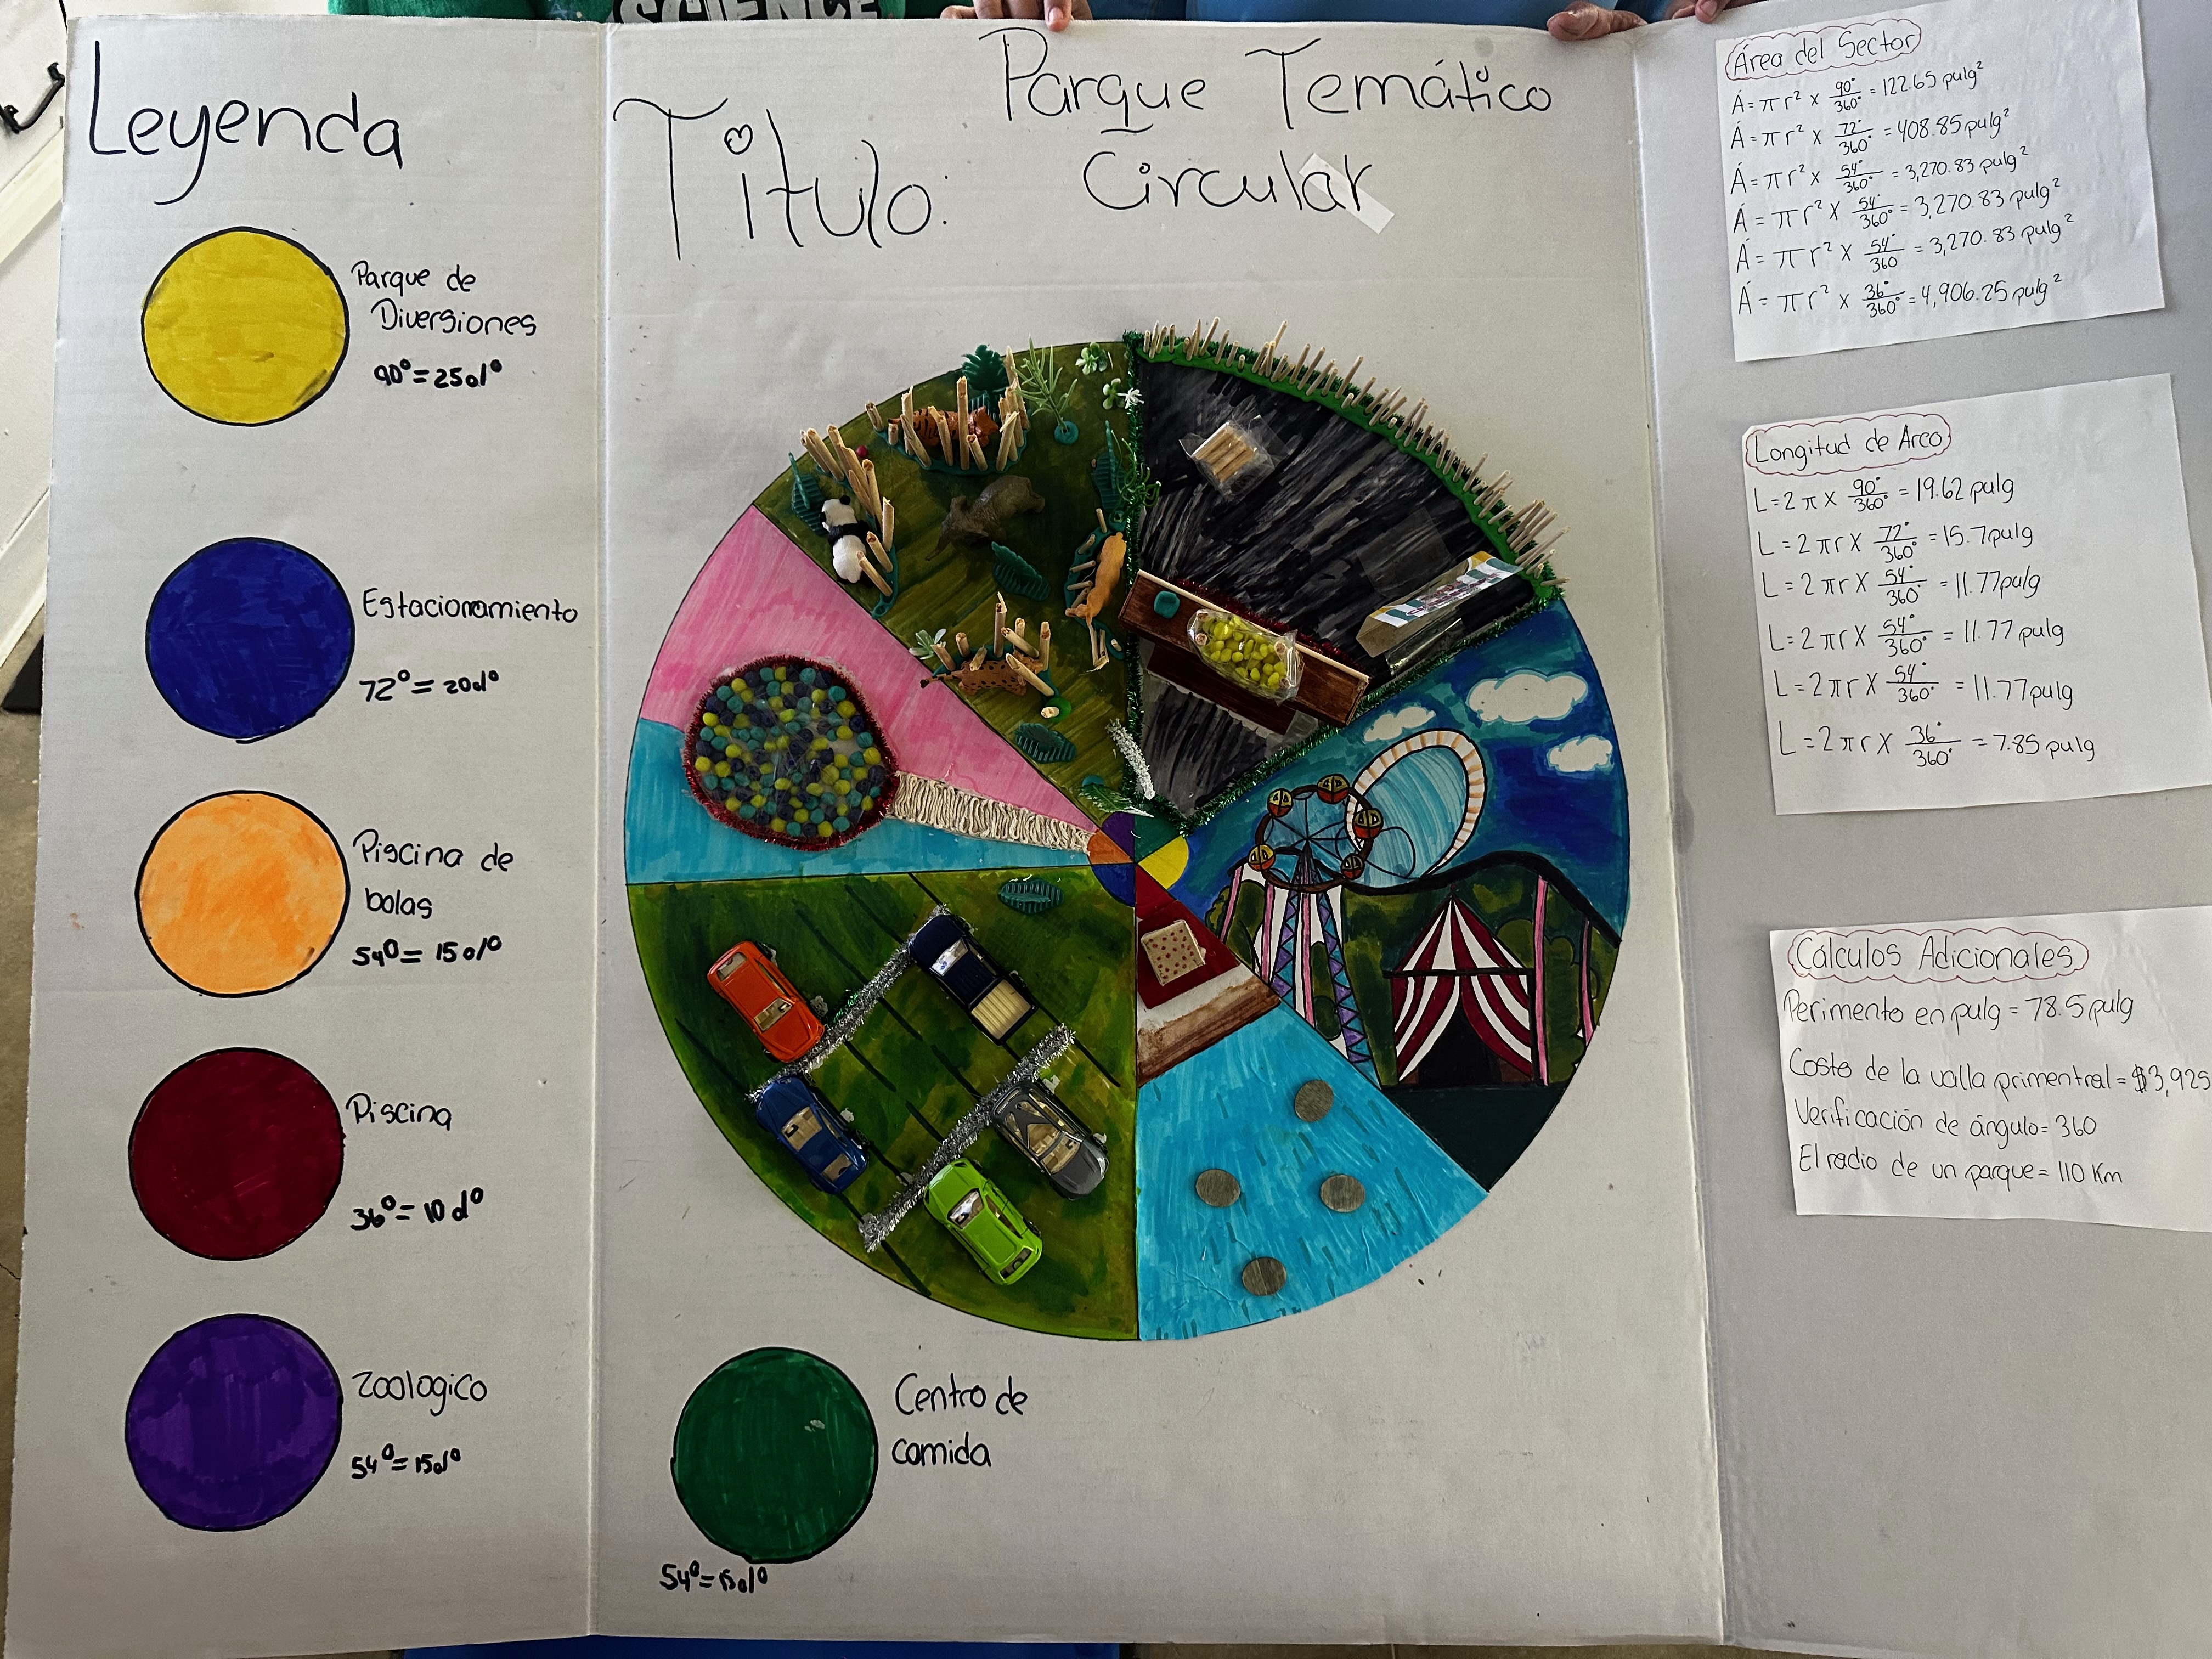 SCIENCE
Leyenda
Parque de
Diversiones
90°=25%
Estacionamiento
72°=20%
Piscina de
bolas
54°=15%
Piscina
36°=10%
Zoologico
54°=15%
Parque Temático
Título: Circular
Centro de
comida
54°=15%
Área del Sector
Á=πr² x 90°/360° = 122.65 pulg²
Á=πr² x 72°/360° = 408.85 pulg²
Á=πr² x 54°/360° = 3,270.83 pulg²
Á=πr² x 54°/360° = 3,270.83 pulg²
Á=πr² x 54°/360 = 3,270.83 pulg²
Á=πr² x 36°/360° = 4,906.25 pulg²
Longitud de Arco
L=2π x 90°/360° = 19.62 pulg
L=2πr x 72°/360° = 15.7 pulg
L=2πr x 54°/360° = 11.77 pulg
L=2πr x 54°/360° = 11.77 pulg
L=2πr x 54°/360° = 11.77 pulg
L=2πr x 36°/360° = 7.85 pulg
Cálculos Adicionales
Perimento en pulg = 78.5 pulg
Costo de la valla primentral = $3,925
Verificación de ángulo = 360
El radio de un parque = 110 Km